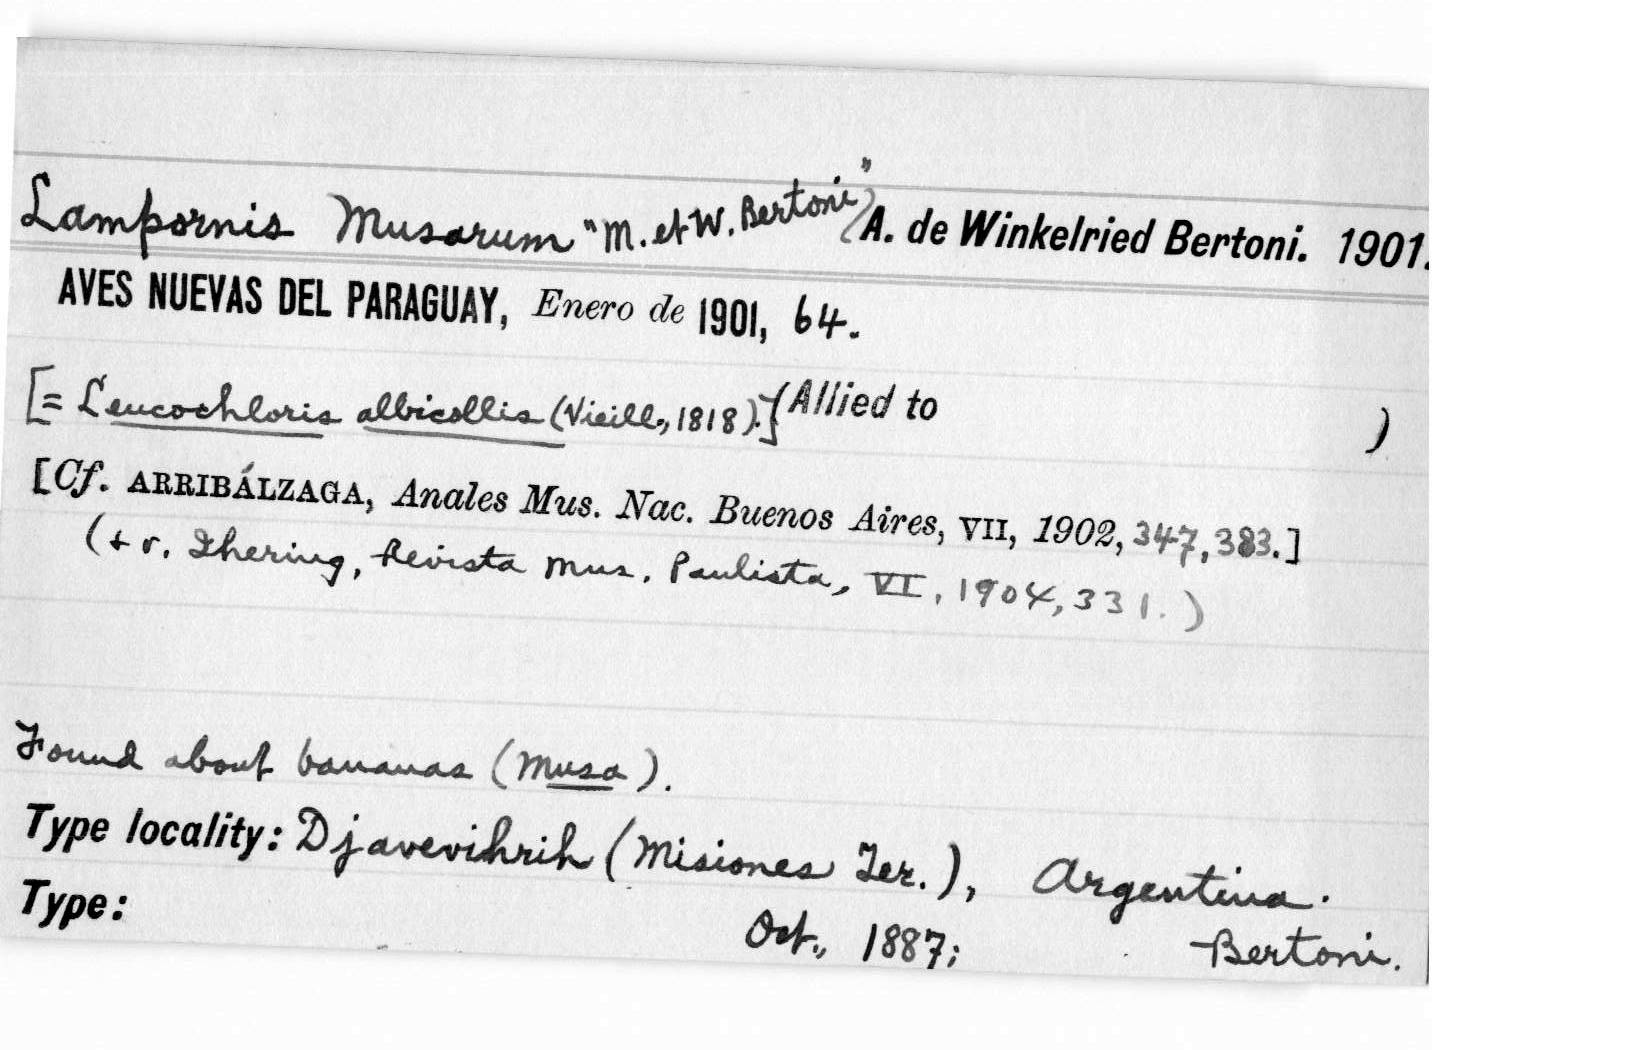 Lampornis Musarum "M. et W. Bertoni" (A. de Winkelried Bertoni. 1901.
AVES NUEVAS DEL PARAGUAY, Enero de 1901, 64.
[= Leucochloris albicollis (Vieill., 1818).] (Allied to )
[Cf. ARRIBÁLZAGA, Anales Mus. Nac. Buenos Aires, VII, 1902, 347, 383.]
(+ v. Ihering, Revista Mus. Paulista, VI, 1904, 331.)
Found about bananas (Musa).
Type locality: Djavevihrih (Misiones Ter.), Argentina.
Type: Oct., 1887; Bertoni.